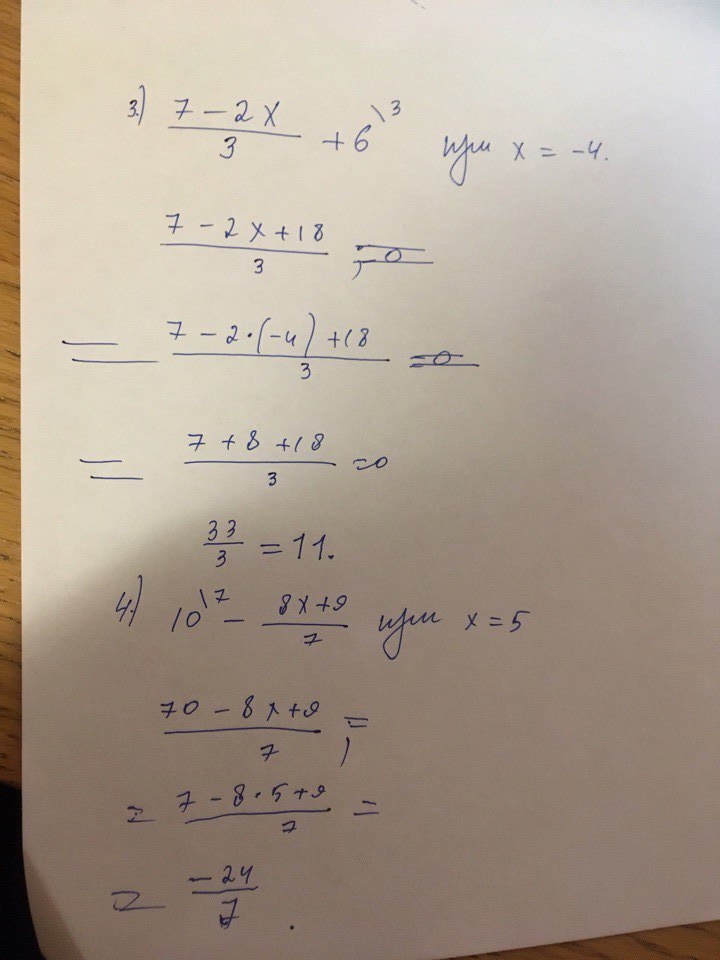 3.) (7 - 2x)/3 + 6\3 при x = -4.
(7 - 2x + 18)/3 ; = 0
= (7 - 2·(-4) + 18)/3 = 0
= (7 + 8 + 18)/3 = 0
33/3 = 11.
4.) 10\7 - (8x + 9)/7 при x = 5
(70 - 8x + 9)/7 ; =
= (7 - 8·5 + 9)/7 =
= -24/7 .